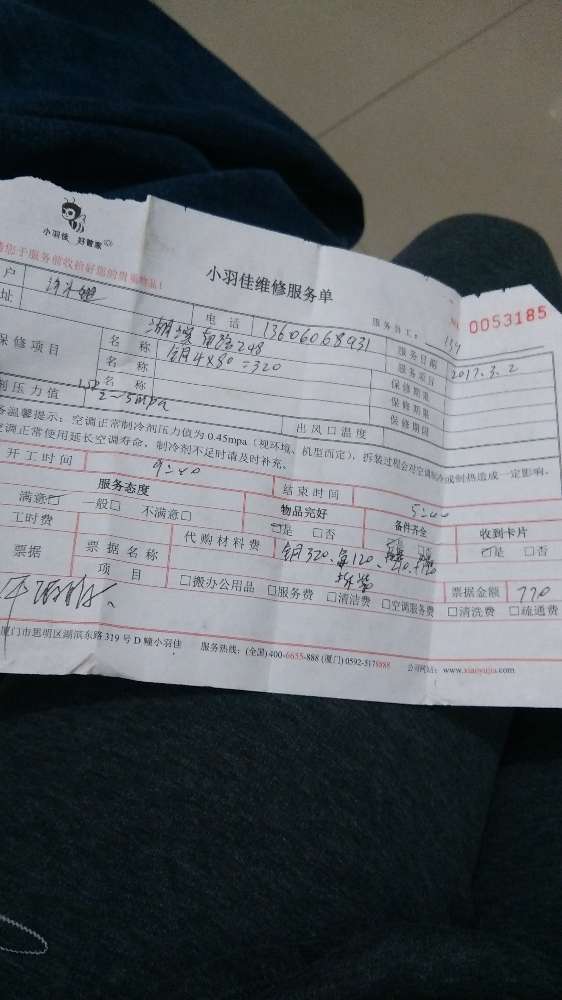 小羽佳 好管家
请您于服务前收拾好您的贵重物品!
小羽佳维修服务单
0053185
户
电话 13606068931 服务员工: 134
址 湖滨南路298 服务日期 2017.3.2
保修项目 名称 铜4×80=320 服务项目
名称 保修期限
名称 保修期限
制压力值 mpa 出风口温度 保修期限
温馨提示:空调正常制冷剂压力值为0.45mpa(视环境、机型而定),拆装过程会对空调制冷或制热造成一定影响。
空调正常使用延长空调寿命,制冷剂不足时请及时补充。
开工时间 9:00 结束时间 5:00
服务态度 物品完好 备件齐全 收到卡片
满意□ 一般□ 不满意□ □是 □否 □是 □否 □是 □否
工时费 代购材料费
票据 票据名称 票据金额 770
项目 □搬办公用品 □服务费 □清洁费 □空调服务费 □清洗费 □疏通费
厦门市思明区湖滨东路319号D幢小羽佳 服务热线:(全国)400-6655-888 (厦门)0592-5178888 公司网站:www.xiaoyujia.com